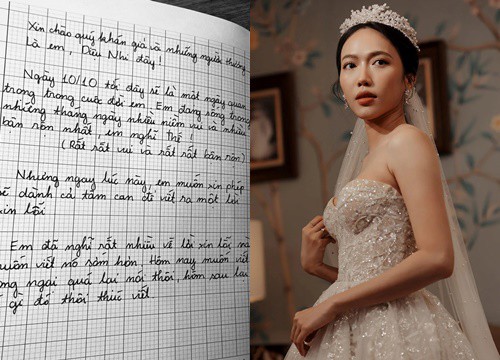 Xin chào quý khán giả và những người thương
Là em, Dâu Nhi đây!
Ngày 10/10 tới đây sẽ là một ngày quan
trọng trong cuộc đời em. Em đang sống trong
những tháng ngày nhiều niềm vui và nhiều
bận rộn nhất, em nghĩ thế!
(Rất rất vui và rất rất bận rộn)
Nhưng ngay lúc này, em muốn xin phép
dành cả tâm can để viết ra một lời
xin lỗi
Em đã nghĩ rất nhiều về lời xin lỗi này
muốn viết nó sớm hơn. Hôm nay muốn viết
ngày quá lại nói thôi, hôm sau lại
gì đó thôi thúc viết